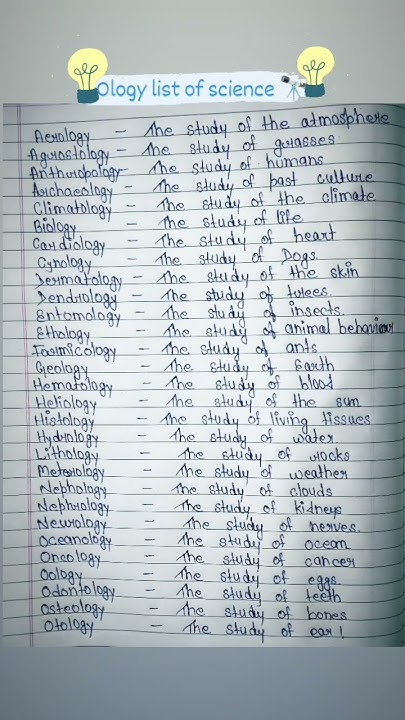 Ology list of science
Aerology - The study of the atmosphere
Agrostology - The study of grasses.
Anthropology - The study of humans
Archaeology - The study of past culture
Climatology - The study of the climate
Biology - The study of life
Cardiology - The study of heart
Cynology - The study of Dogs.
Dermatology - The study of the skin
Dendrology - The study of trees.
Entomology - The study of insects.
Ethology - The study of animal behaviour
Formicology - The study of ants
Geology - The study of Earth
Hematology - The study of blood
Heliology - The study of the sun
Histology - The study of living tissues
Hydrology - The study of water.
Lithology - The study of rocks
Meterology - The study of weather
Nephology - The study of clouds
Nephrology - The study of kidneys
Neurology - The study of nerves.
Oceanology - The study of ocean
Oncology - The study of cancer
Oology - The study of eggs.
Odontology - The study of teeth
Osteology - The study of bones
Otology - The study of ear!